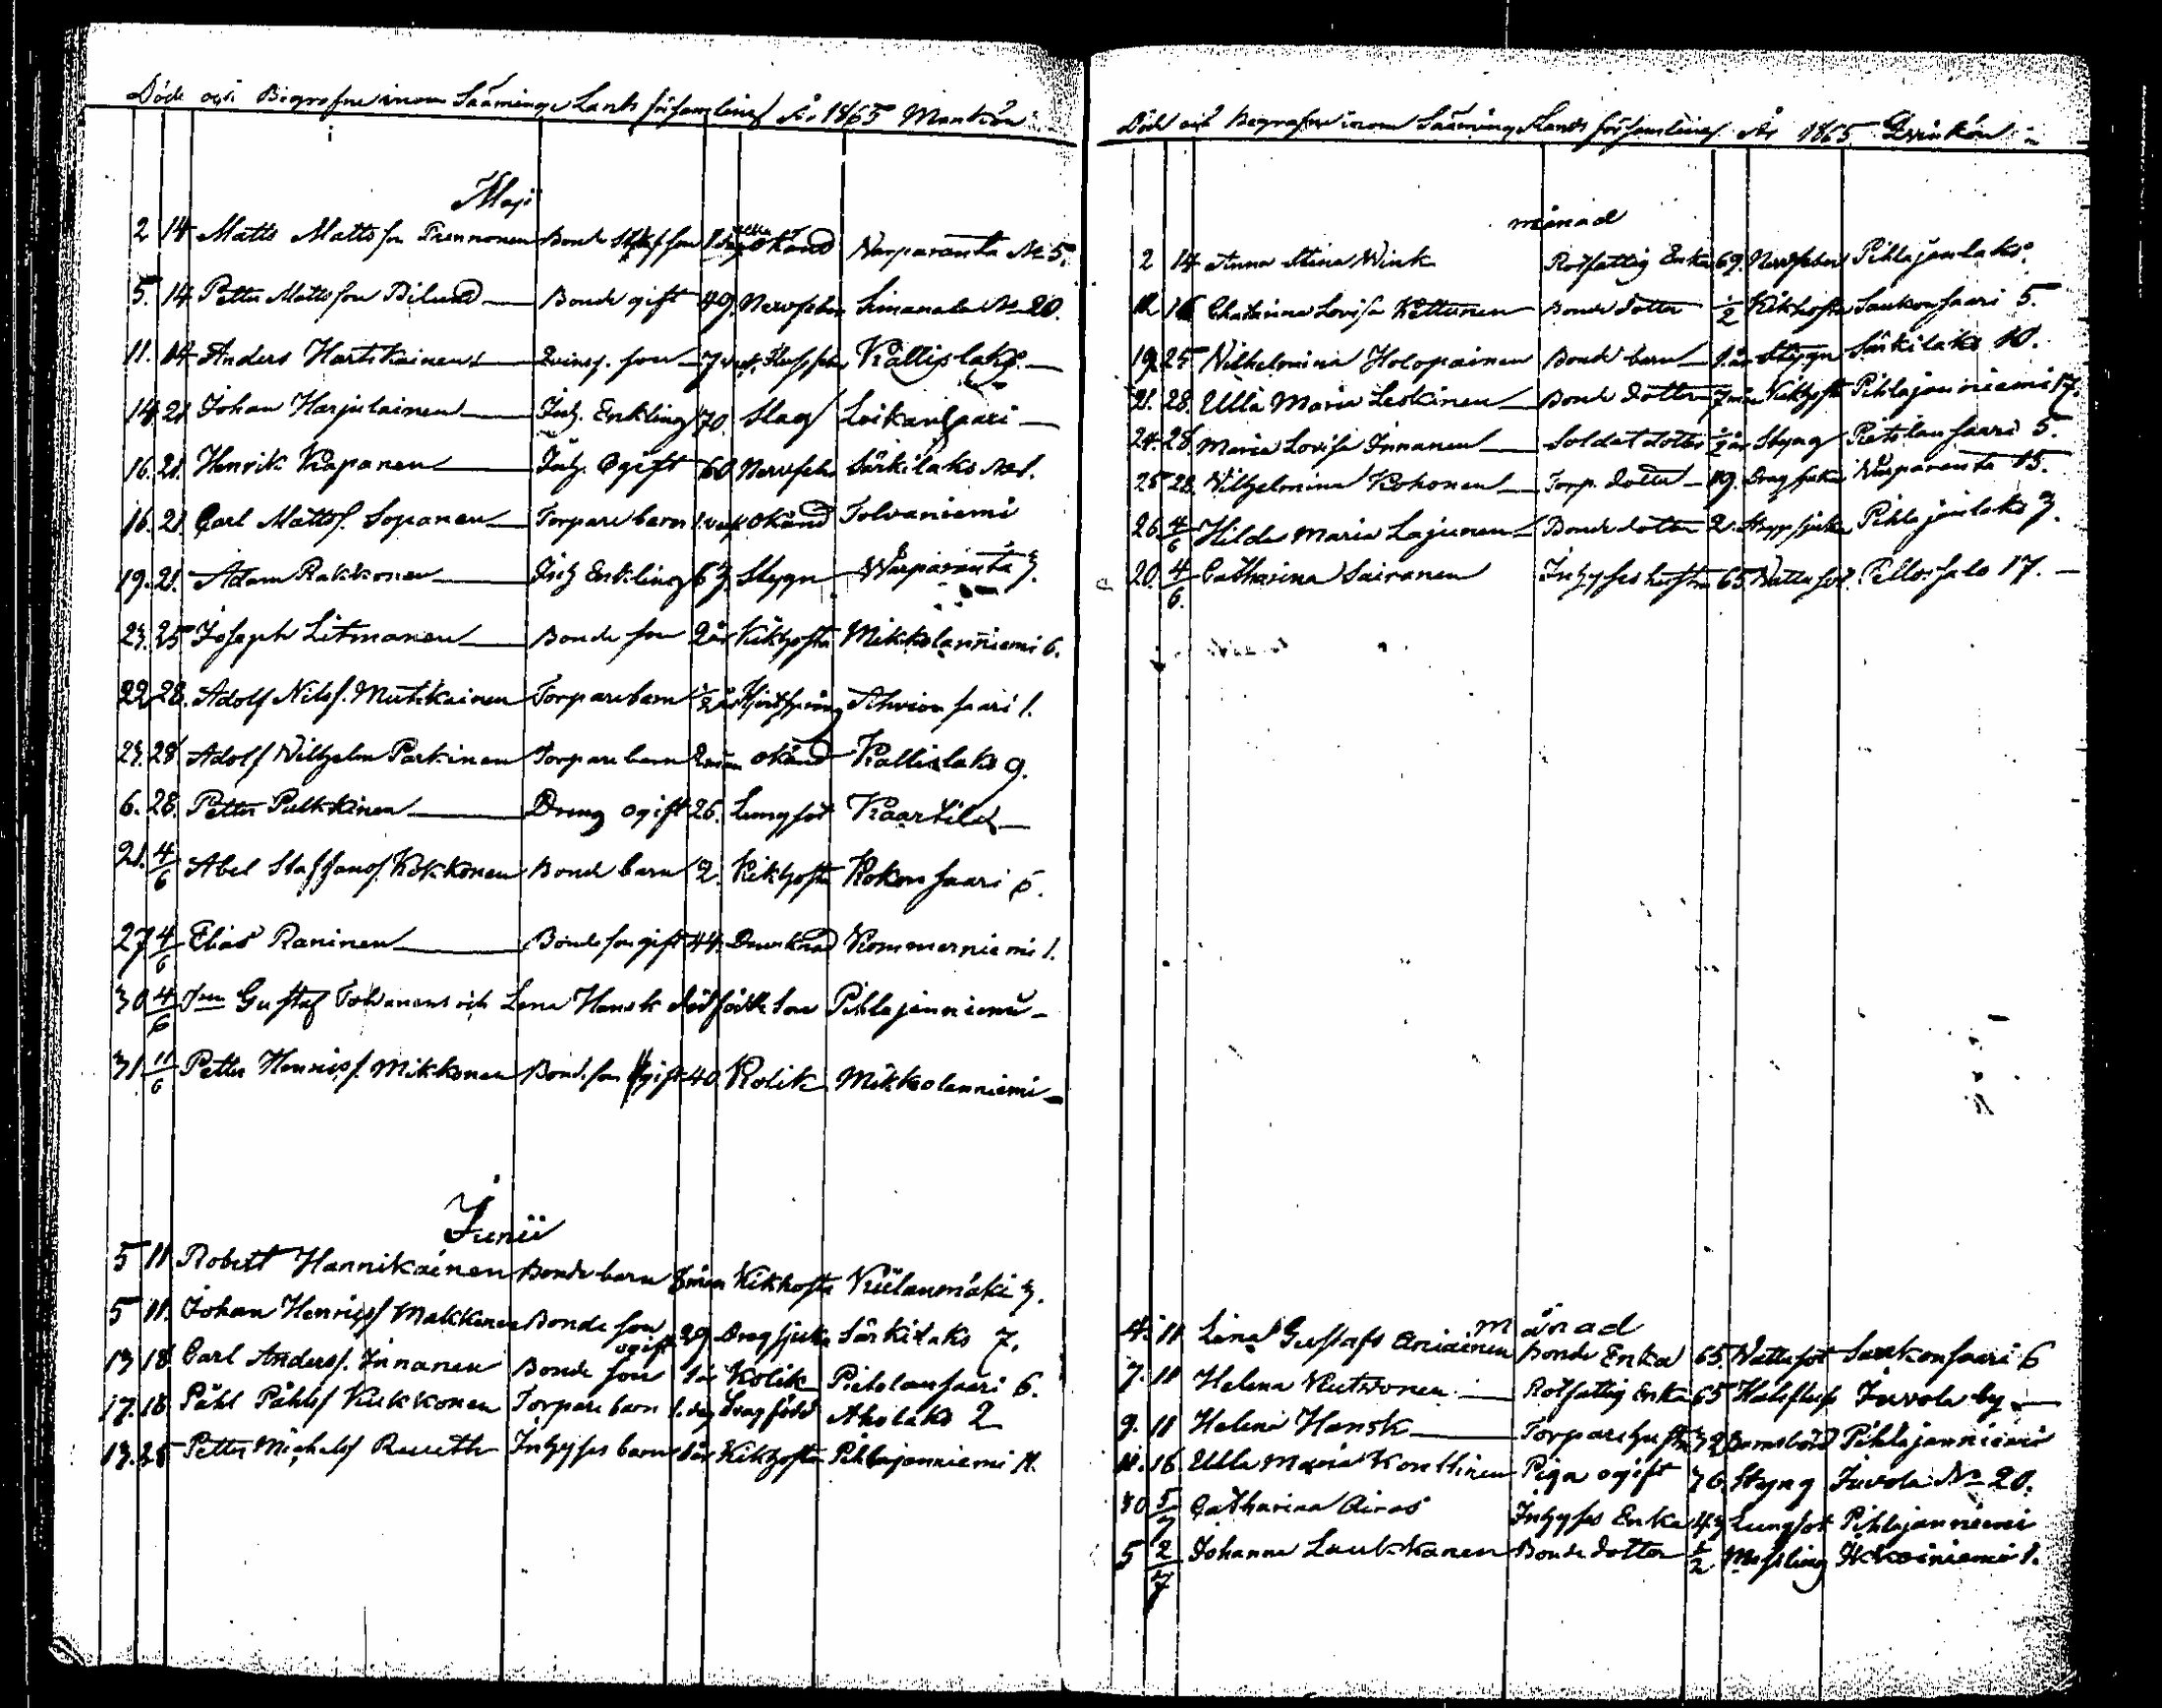 Döde och Begrafne inom Sääminge Lands församling År 1865 Mankön
Maji
2 14 Matts Mattsson Bonde okänd Warparanta No 5.
5. 14. Petter Mattsson Bilund Bonde gift 49. Nervfeber Simanala No 20.
11. 14 Anders Hartikainen son 7 Kallislaks
14 21 Johan Harjulainen Inh. Enkling 70. Slag Loikansaari
16. 21. Henrik Kapanen Inh. Ogift 60 Nervfeber Särkilaks No 1.
16. 21 Carl Mattss. Sopanen Torpare barn 1. vek okänd Tolvaniemi
19. 21. Adam Rakkonen Inh Enkling 63. Stygn Warparanta 3.
23. 25 Joseph Litmanen Bonde son 2 år Kikhosta Mikkolanniemi 6.
22 28. Adolf Nilss. Mutikainen Torpare barn 1/2 år Ahvionsaari 1.
23. 28 Adolf Wilhelm Parkinen Torpare barn 2 mån okänd Kallislaks 9.
6. 28. Petter Pulkkinen Dreng ogift 26. Lungsot Kaartila
21. 4/6 Abel Staffanss. Kokkonen Bonde barn 2. Kikhosta Kokonsaari 5.
27 4/6 Elias Raninen Bonde son gift 44. Drunknad Kommerniemi 1.
30 4/6 Gustaf Tolvanens och Lena Hansk dödfödde Son Pihlajanniemi
31. 11/6 Petter Henrics. Mikkonen Bond. son gift 40 Kolik Mikkolanniemi
Junii
5 11 Robert Hannikainen Bonde barn 8 mån Kikhosta Kiilanmäki 3.
5 11. Johan Henricss Makkonen Bonde son ogift 29 Bragsjuka Särkilaks 7.
13 18 Carl Anderss. Innanen Bonde son 1 år Kolik Pietolansaari 6.
17. 18 Påhl Påhlss Kukkonen Torpare barn 1. dag Aholaks 2
13. 25 Petter Michelss Inhyses barn 1 år Kikhosta Pihlajanniemi 11.
Döde och Begrafne inom Sääminge Lands församling År 1865 Qvinkön
månad
2 14 Anna Stina Wink Rotfattig Enka 69. Nervfeber Pihlajanlaks
12 16 Chatarina Lovisa Kettunen Bonde dotter 1/2 Kikhosta Saukonsaari 5.
19 25 Wilhelmina Holopainen Bonde barn 1 år Stygn Särkilaks 10.
21. 28. Ulla Maria Leskinen Bonde dotter 7 mån Kikhosta Pihlajanniemi 17.
24. 28 Maria Lovisa Innanen Soldat dotter 1/2 år Styng Pietolansaari 5.
25 28. Wilhelmina Kohonen Torp. dotter 19. Bragsjuka Warparanta 15.
26. 4/6 Hilda Maria Lajunen Bonde dotter 2. Pihlajanlaks 3.
20. 4/6. Catharina Sairanen Inhyses hustru 65. Wattusot Pellossalo 17.
månad
4. 11 Lena Gustafs Bonde Enka 65. Wattusot Saukonsaari 6
7. 11 Helena Kutvonen Rotfattig Enka 65 Juvola by
9. 11 Helena Hansk Torpare hustru 32 Barnsbörd Pihlajanniemi
11. 16. Ulla Maria Konttinen Piga ogift 36. Styng Juvola No 20.
30 5/7 Catharina Airas Inhyses Enka 43 Lungsot Pihlajanniemi
5 2/7 Johanna Laukkanen Bonde dotter 1/2 Messling Ikoinniemi 1.